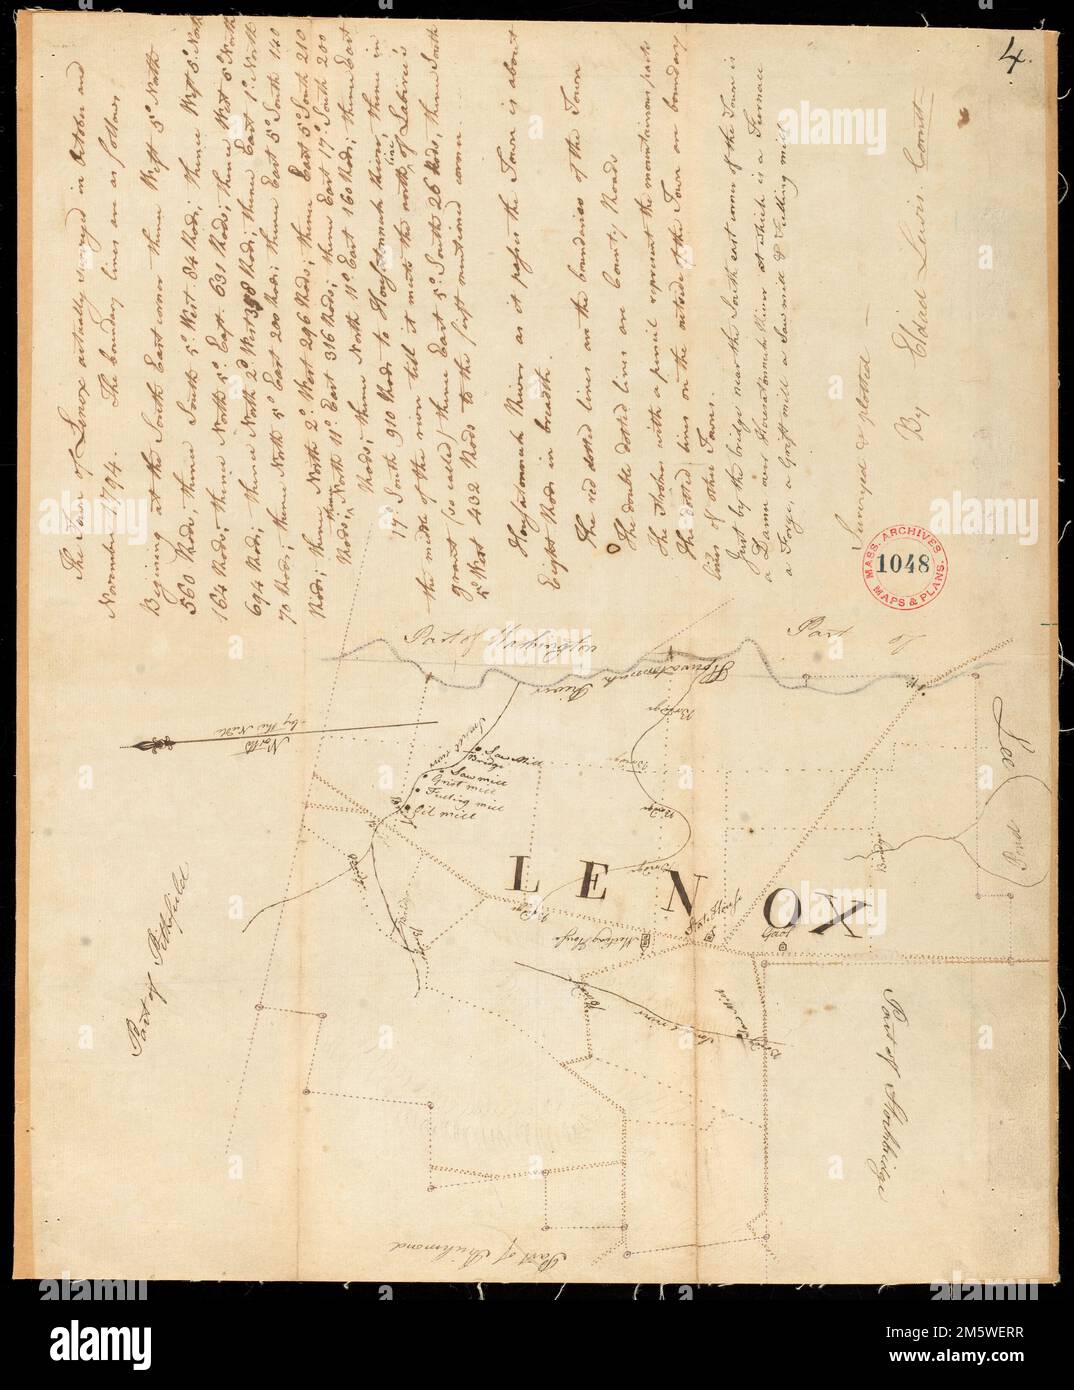 4.
The Town of Lenox actually surveyed in October and
November 1794. The boundary lines are as follows
Begining at the South East corner thence West 5° North
560 Rods; thence South 5° West 84 Rods; thence West 5° North
164 Rods; thence North 5° East 631 Rods; thence West 5° North
694 Rods; thence North 2° West 398 Rods; thence East 1° North
70 Rods; thence North 5° East 200 Rods; thence East 5° South 140
Rods; thence North 2° West 296 Rods; thence East 5° South 210
Rods; thence North 11° East 316 Rods; thence East 17° South 200
Rods; thence North 11° East 160 Rods; thence East
19° South 910 Rods to Housatonnuck River; thence in
the middle of the river till it meets the north line of
grant (so called) thence East 5° South 26 Rods; thence South
5° West 432 Rods to the first mentioned corner.
Housatonnuck River as it passes the Town is about
Eight Rods in breadth.
The red dotted lines are the boundaries of the Town
The double dotted lines are County Roads
The Strokes with a pencil represent the mountainous parts
The dotted lines on the outside of the Town are boundary
lines of other Towns.
Just by the bridge near the South east corner of the Town is
a Damm over Housatonnuck River at which is a Furnace
a Forge, a Grist mill a Saw mill & Fulling mill
Surveyed & plotted —
By Eldad Lewis. Comtt
MASS. ARCHIVES
1048
MAPS & PLANS.
Part of Washington
Part of
Lee
Housatonnuck River
North by the Needle
Saw Mill
Bridge
Saw mill
Grist mill
Fulling mill
Oil mill
Bridge
Bridge
Bridge
Bridge
Bridge
Bridge
Pond
LENOX
Meeting House
Gaol
Part of Pittsfield
Part of Stockbridge
Part of Richmond
alamy
Image ID: 2M5WERR
www.alamy.com